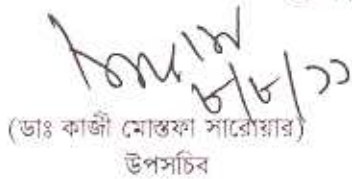 ৮/৮/১১
(ডাঃ কাজী মোস্তফা সারোয়ার)
উপসচিব